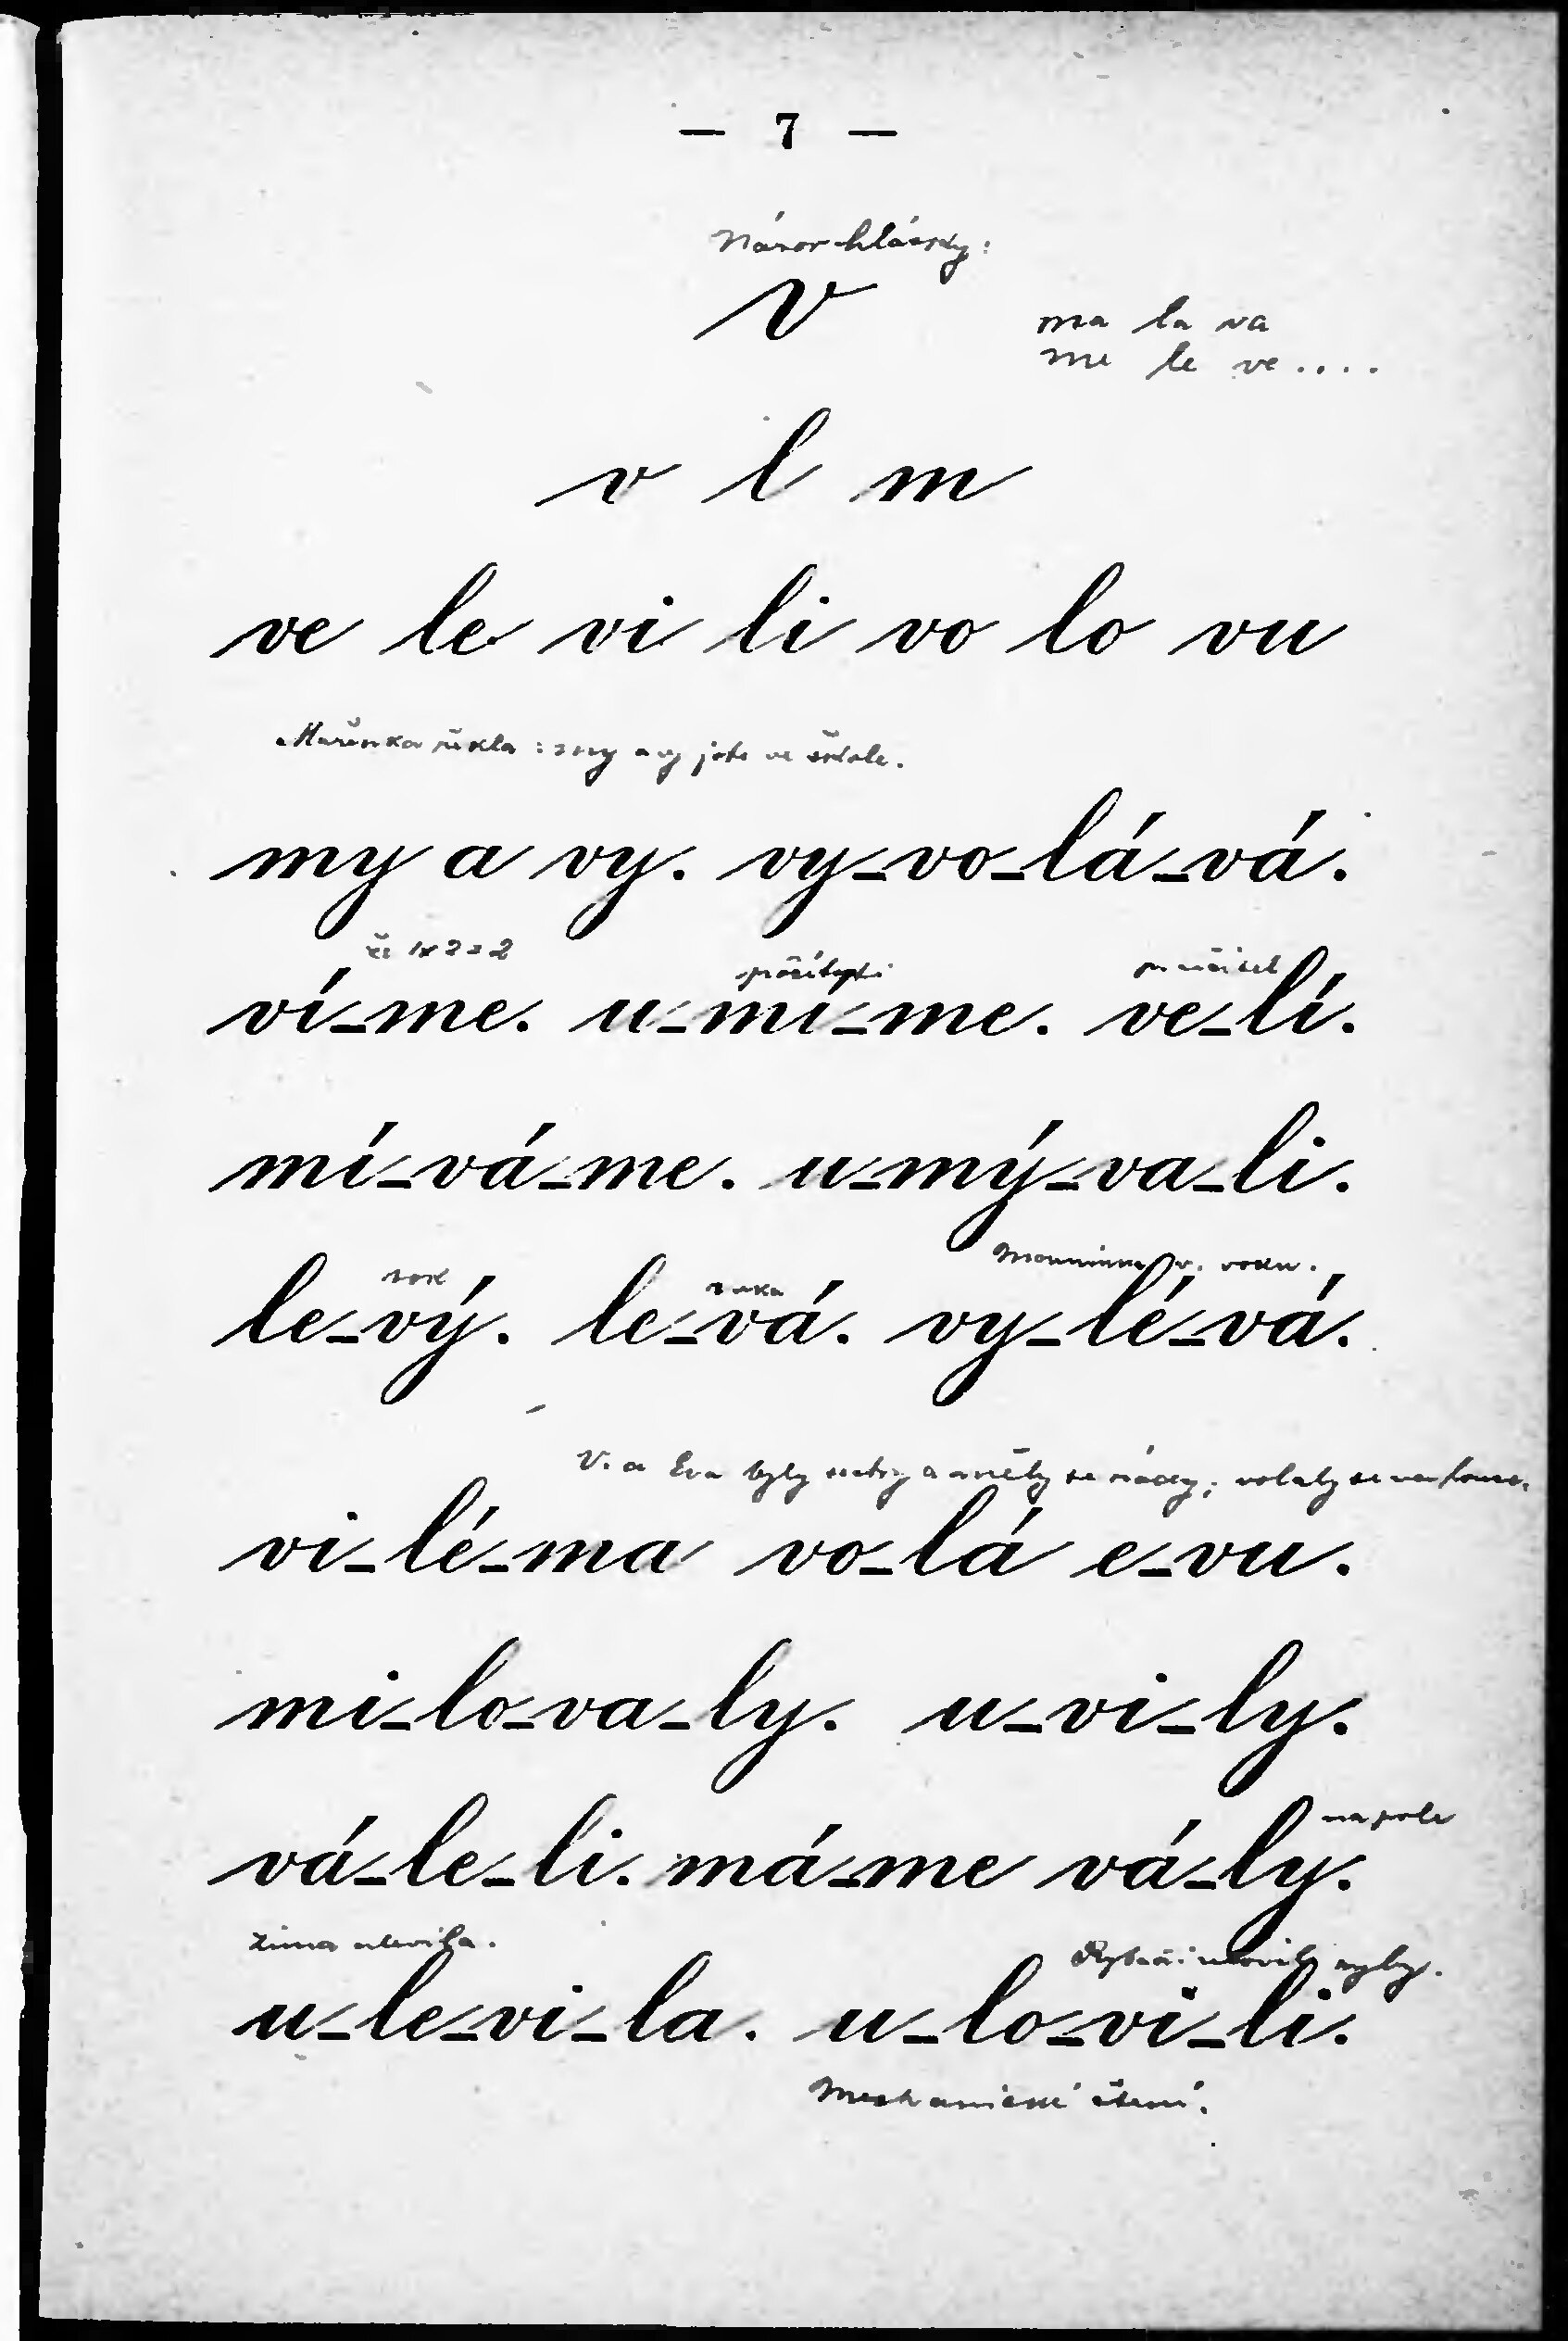 — 7 —
Názor hlásky:
v
ma la va
me le ve....
v l m
ve le vi li vo lo vu
Mařenka řekla: my a vy jste ve škole.
my a vy. vy-vo-lá-vá.
že 1x2=2
ví-me. u-mí-me. ve-lí.
mí-vá-me. u-mý-va-li.
rok ruka Maminka vodu.
le-vý. le-vá. vy-lé-vá.
V. a Eva byly sestry a měly se rády; volaly se
vi-lé-ma vo-lá e-vu.
mi-lo-va-ly. u-vi-ly.
na pole
vá-le-li. má-me vá-ly.
Zima ulevila. Rybáři ulovili ryby.
u-le-vi-la. u-lo-vi-li.
Mechanické čtení.